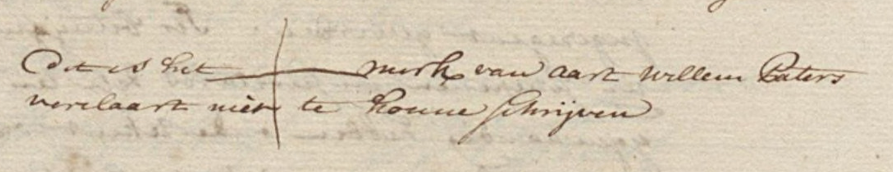 Dit is het merk van aart willem Paters
verclaart niet te konne schrijven